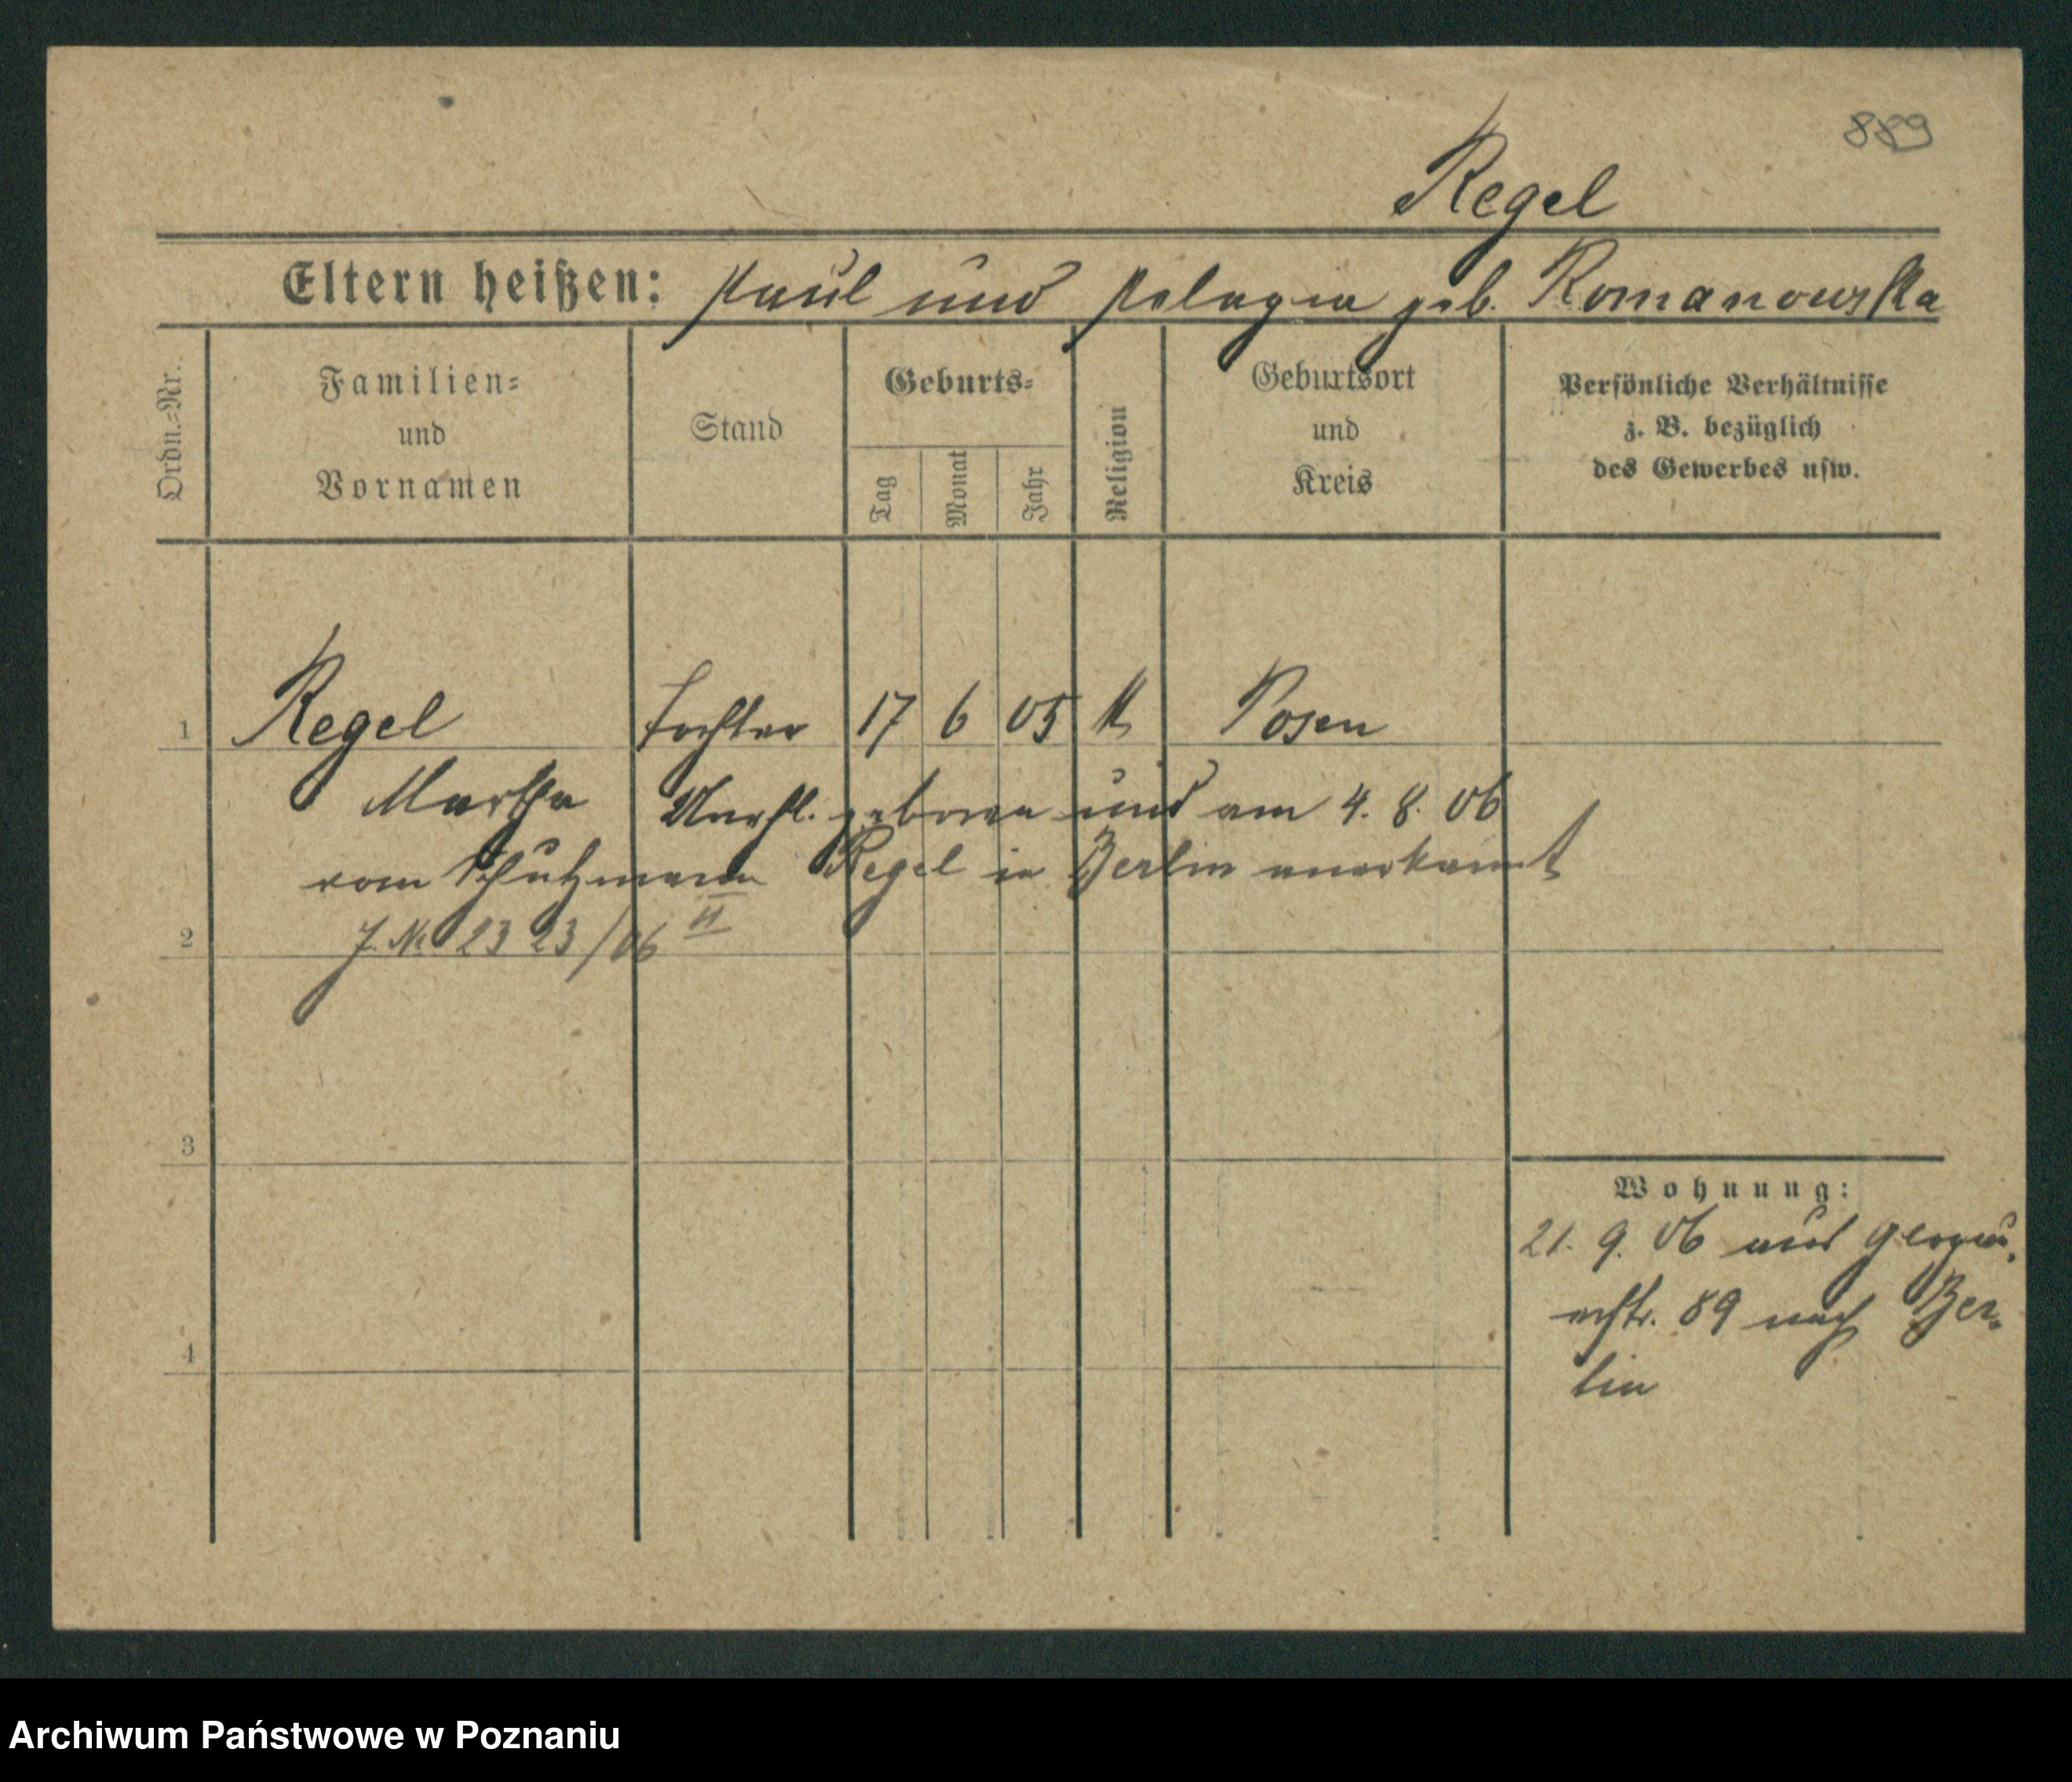 889
Regel
Eltern heißen: Paul und Pelagia geb. Romanowska
Ordn.=Nr.
Familien=
und
Vornamen
Stand
Geburts=
Tag
Monat
Jahr
Religion
Geburtsort
und
Kreis
Persönliche Verhältnisse
z. B. bezüglich
des Gewerbes usw.
1 Regel Tochter 17 6 05 K Posen
Martha Unehl. geboren und am 4. 8. 06
vom Schutzmann Regel in Berlin anerkannt
2 J. Nr. 2323/06 II
3
Wohnung:
21. 9. 06 aus Glogau,
erstr. 89 nach Ber-
lin
4
Archiwum Państwowe w Poznaniu